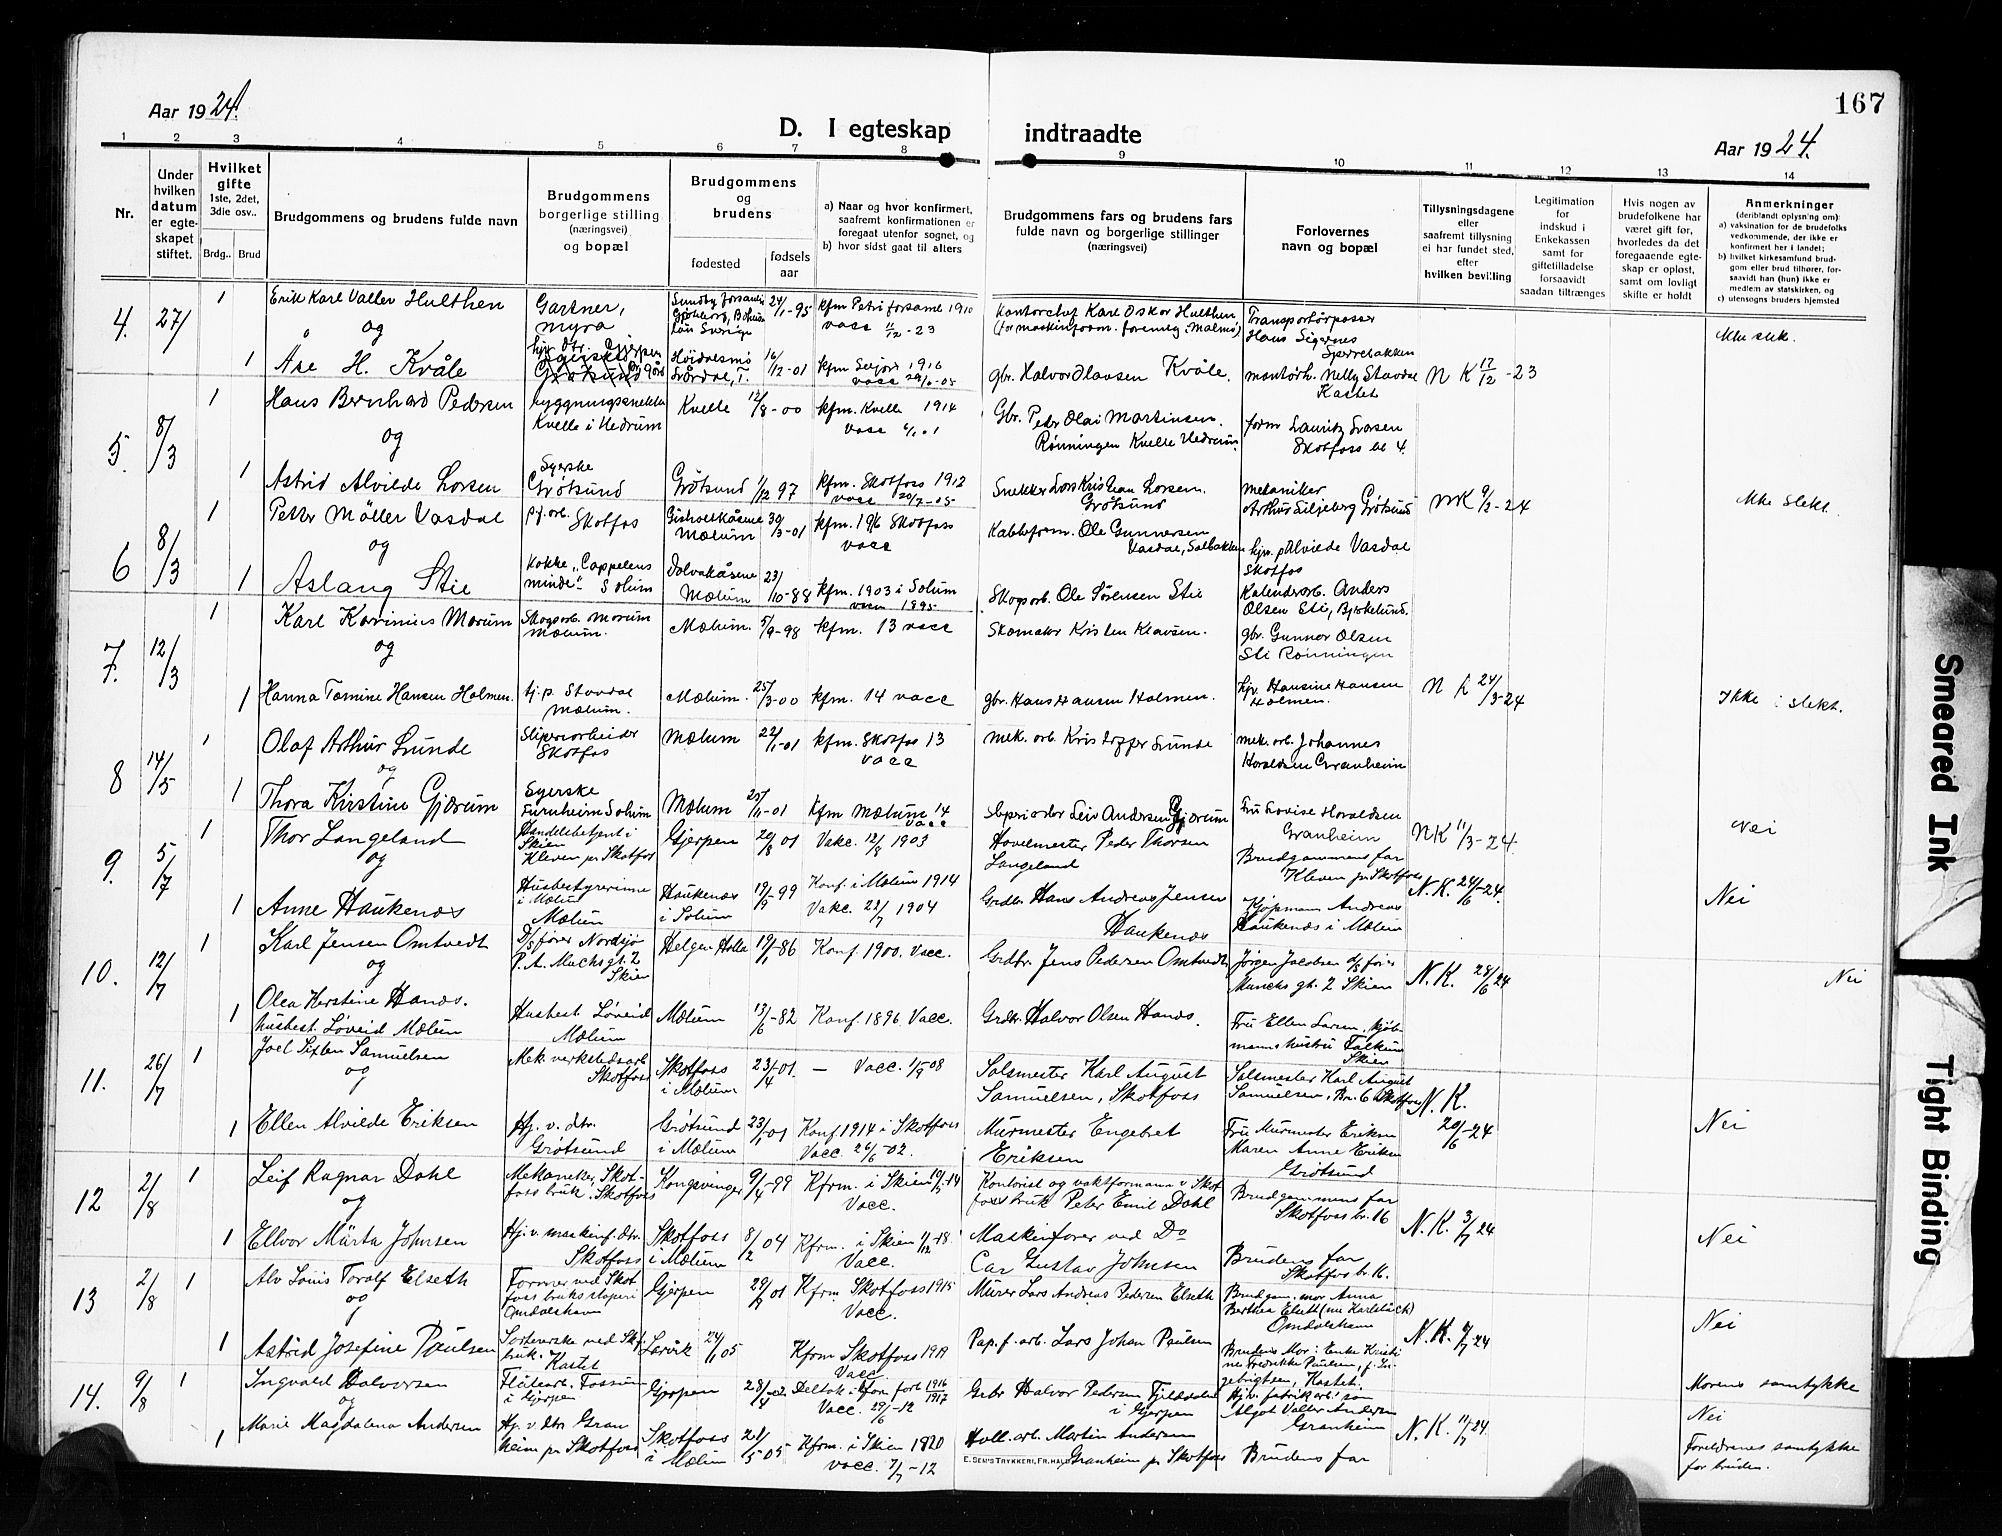 Aar 1924.
D. I egteskap indtraadte
167
Aar 1924.
1 2 3 4 5 6 7 8 9 10 11 12 13 14
Nr.
Under hvilken datum er egteskapet stiftet.
Hvilket gifte 1ste, 2det, 3die osv..
Brdg.. Brud
Brudgommens og brudens fulde navn
Brudgommens borgerlige stilling (næringsvei) og bopæl
Brudgommens og brudens
fødested
fødselsaar
a) Naar og hvor konfirmert, saafremt konfirmationen er foregaat utenfor sognet, og
b) hvor sidst gaat til alters
Brudgommens fars og brudens fars fulde navn og borgerlige stillinger (næringsvei)
Forlovernes navn og bopæl
Tillysningsdagene eller saafremt tillysning ei har fundet sted, efter hvilken bevilling
Legitimation for indskud i Enkekassen samt for giftetilladelse forsaavidt saadan tiltrænges
Hvis nogen av brudefolkene har været gift før, hvorledes da det foregaaende egteskap er opløst, samt om lovligt skifte er holdt
Anmerkninger (deriblandt oplysning om)
a) vaksination for de brudefolks vedkommende, der ikke er konfirmert her i landet;
b) hvilket kirkesamfund brudgom eller brud tilhører, forsaavidt han (hun) ikke er medlem av statskirken, og
c) utensogns bruders hjemsted
4. 27/
1 Erik Karl Valler Hulthen
og
Gartner, myra
24/1-95
kfm Petri forsaml 1910
vacc 11/12-23
Kontorchef Karl Oskar Hulthen
Transportørpasser
Hans Sigernes
Sperrebakken
Ikke slekt.
1 Åse H. Kvåle
Høidalsmo
16/12-01
kfm Seljord 1916
gbr. Halvor Olavsen Kvåle.
montørh. Nelly Stavdal
Kastet
N K 17/12-23
5. 8/3
1 Hans Bernhard Pedersen
og
bygningssnekker
Kvelle i Hedrum
Kvelle 12/8-00
kfm. Kvelle 1914
Gbr. Peder Olai Martinsen.
Rønningen Kvelle Hedrum.
form Lauritz Larsen
Skotfoss bl 4.
1 Astrid Alvilde Larsen
Syerske
Grøtsund
Grøtsund 1/12 97
kfm. Skotfoss 1912
vacc 20/7-05
Snekker Lars Kristian Larsen.
Grøtsund
mekaniker
Arthur Siljeberg Grøtsund
NK 9/2-24
Ikke slekt
6 8/3
1 Petter Möller Vasdal
og
Skotfos
Mælum 30/3-01
kfm. 1916 Skotfoss
vacc
Ole Gunnersen
Vasdal, Solbakken
hjv. Alvilde Vasdal
Skotfos
1 Aslaug Stie
Kokke "Cappelens minde". Solum
Dolvakåsene
Mælum 23/10-88
kfm. 1903 i Solum
vacc 1895
Skogsarb. Ole Sørensen Stie
Kalenderarb. Anders
Olsen Sti, Bjerkelund.
7. 12/3
1 Karl Karinius Mørum
og
Skogsarb. Mørum
Mælum.
Mælum. 5/9-98
kfm. 13 vacc
Skomaker Kristen Klausen.
gbr. Gunnar Olsen
Sti Rønningen
1 Hanna Tomine Hansen Holmen.
tj. p. Stavdal
Mælum.
Mælum. 25/3-00
kfm. 14 vacc
gbr. Hans Hansen Holmen.
hjv. Hansine Hansen
Holmen.
N K 24/3-24
Ikke i slekt.
8 14/5
1 Olaf Arthur Lunde
og
Sliperiarbeider
Skotfos
Mælum 22/1-01
kfm. Skotfos 13
vacc
mek. arb. Kristoffer Lunde
mek. arb. Johannes
Haraldsen Granheim
1 Thora Kirstine Gjærum
Syerske
Furnheim Solum
Mælum 25/11-01
kfm Mælum 14
vacc
Leiv Andersen Gjærum
Fru Lovise Haraldsen
Granheim
NK 11/3-24.
Nei
9. 5/7
1 Thor Langeland
og
Handelsbetjent i
Skien
Kleven pr Skotfos
Gjerpen 20/8 01
Vakc. 12/8 1903
Hovelmester Peder Thorsen
Langeland
Brudgommens far
Kleven pr Skotfoss
1 Anne Haukenæs
Husbestyrerinne
i Mælum
Mælum
Haukenæs
i Solum 19/9-99
Konf. i Mælum 1914
Vakc. 22/7 1904
Grdbr. Hans Andreas Jensen
Haukenæs
Kjøpmann Andreas
Haukenæs i Mælum
N. K. 24/6-24.
Nei
10. 12/7
1 Karl Jensen Omtvedt
og
D/s fører Nordsjø
P. A. Munchs gt. 2
Skien
Helgen Holla 19/1-86
Konf. 1900. Vacc.
Grdbr. Jens Pedersen Omtvedt
Jørgen Jacobsen d/s fører
Munchs gt. 2 Skien
1 Olea Kerstine Hands.
husbest. Løveid Mælum
Husbest. Løveid
Mælum
Mælum 13/6-82
Konf. 1896. Vacc.
Grdbr. Halvor Olsen Hands.
Fru Ellen Larsen, kjøbmanns hustru Falkum
Skien
N. K. 28/6 24
Nei
11. 26/7
1 Joel Sixten Samuelsen
og
Mek. verkstedsarb.
Skotfoss
Skotfoss
i Mælum 23/4-01.
— Vacc. 1/9 08
Salsmester Karl August
Samuelsen, Skotfoss
Salsmester Karl August
Samuelsen, Br. 6 Skotfoss
1 Ellen Alvilde Eriksen
Hj. v. dtr.
Grøtsund
Grøtsund
i Mælum
Konf 1914 i Skotfoss
Vacc. 26/6-02.
Murmester Engebret
Eriksen
Fru Murmester Eriksen
Maren Anne Eriksen
Grøtsund
N. K.
20/6-24
Nei
12 2/8
1 Leif Ragnar Dahl
og
Mekaniker, Skotfoss bruk, Skotfoss
Kongsvinger 9/4-99
Kfrm. i Skien
Vacc.
Kontorist og vaktformann v. Skotfoss bruk Peter Emil Dahl
Brudgommens far
Skotfoss br. 16
1 Ellvor Märta Johnsen
Hj. v. maskinf. dtr.
Skotfoss
Skotfoss
i Mælum 8/2 04
Kfrm. i Skien
Vacc.
Maskinfører ved Do
Car Gustav Johnsen
Brudens far
Skotfos br. 16.
N. K. 3/7 24
Nei
13 2/8
1 Alv Louis Toralf Elseth
og
Former ved Skotfoss bruks støperi
Omdalshavn
Gjerpen
Kfrm. Skotfoss 1915
Vacc.
Murer Lars Andreas Pedersen Elseth
Brudgom. mor Anna
Berthea Elseth (nu Karlsbäck)
Omdalshavn
1 Astrid Josefine Paulsen
Kastet
Larvik 24/11 05
Kfrm Skotfoss 1919
Vacc
Pap. f. arb. Lars Johan Paulsen
Brudens Mor: Enke Kristine Fredrikke Paulsen, f. Ingebrigtsen, Kastet.
Nei
14. 9/8
1 Ingvald Halvorsen
og
Fløtearb. Fossum
i Gjerpen
Gjerpen
Deltok i kfrm. forb 1916/1917
Vacc. 29/6-12
Gbr Halvor Pedersen Fjeldalen
i Gjerpen
Algot Valter Andersen
Granheim
Morens samtykke
Nei
1 Marie Magdalena Andersen
Hj. v. dtr Granheim pr. Skotfoss
Skotfoss
i Mælum 21/5 05
Kfrm. i Skien 1820
vacc. 7/7-12
Holl. arb. Martin Andersen
Granheim pr Skotfoss
Brudens far
N. K. 11/7 24.
Foreldrenes samtykke
for bruden.
E. SEM'S TRYKKERI, FR.HALD
Smeared Ink
Tight Binding